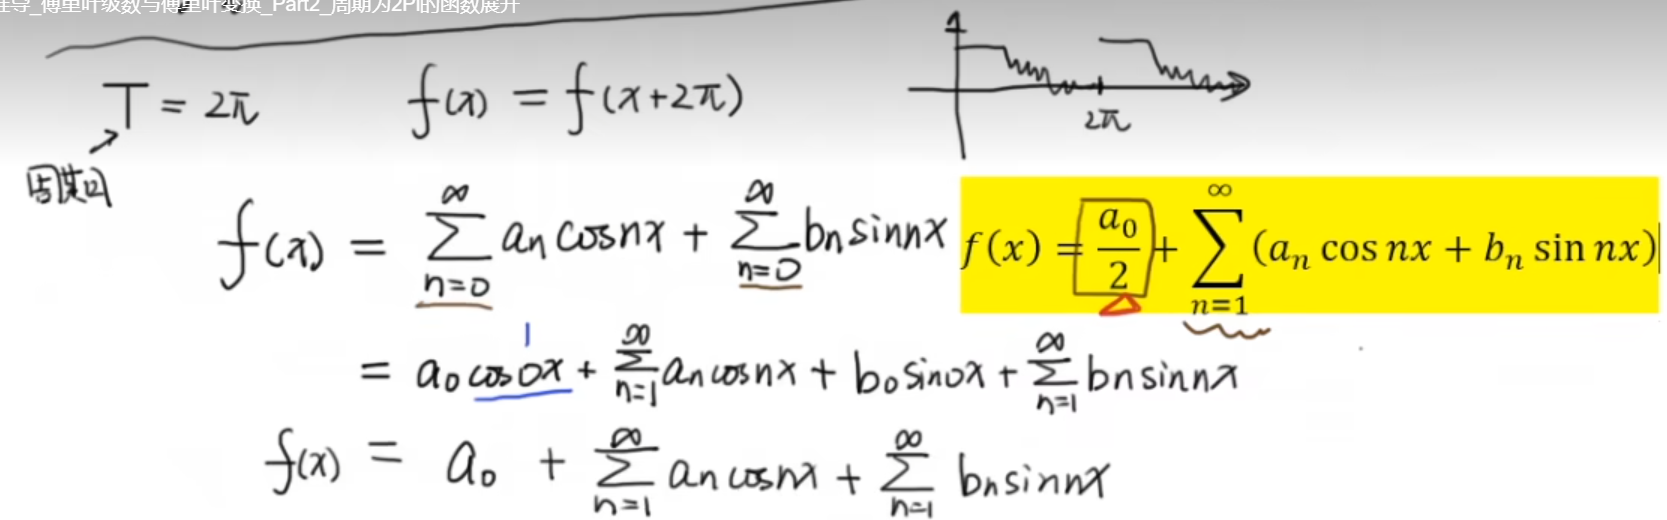 推导_傅里叶级数与傅里叶变换_Part2_周期为2PI的函数展开
T = 2π f(x) = f(x+2π)
1
2π
周期
f(x) = \sum_{n=0}^{∞} a_n cos nx + \sum_{n=0}^{∞} b_n sin nx
f(x) = \frac{a_0}{2} + \sum_{n=1}^{∞} (a_n cos nx + b_n sin nx)
1
= a_0 cos 0x + \sum_{n=1}^{∞} a_n cos nx + b_0 sin 0x + \sum_{n=1}^{∞} b_n sin nx
f(x) = a_0 + \sum_{n=1}^{∞} a_n cos nx + \sum_{n=1}^{∞} b_n sin nx